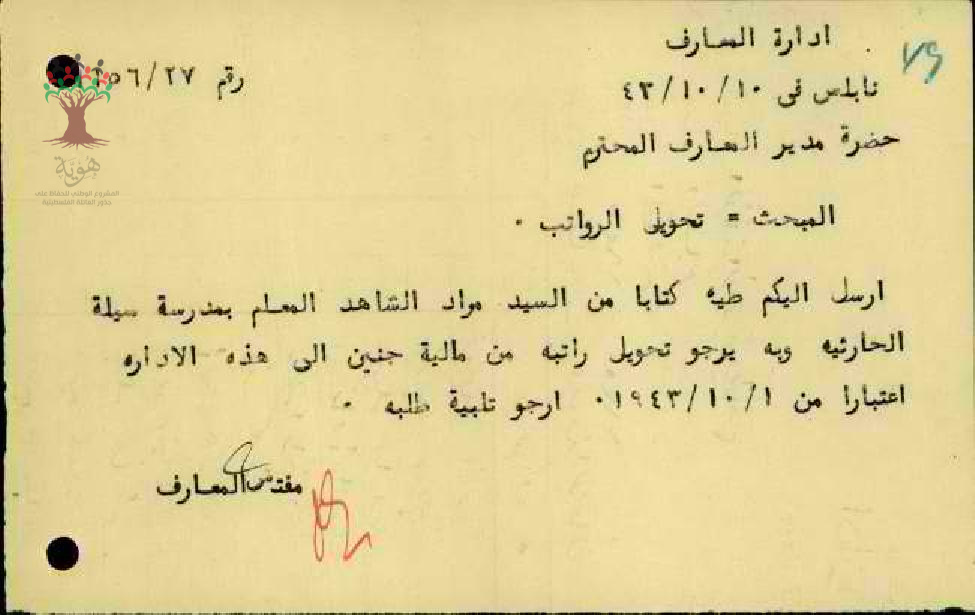 ادارة المعارف
٧٩
نابلس في ١٠/١٠/٤٣
رقم ٥٦/٢٧
حضرة مدير المعارف المحترم
المبحث = تحويل الرواتب ٠
ارسل اليكم طيه كتابا من السيد مراد الشاهد المعلم بمدرسة سيلة
الحارثيه وبه يرجو تحويل راتبه من مالية جنين الى هذه الاداره
اعتبارا من ١/١٠/١٩٤٣٠ ارجو تلبية طلبه ٠
مفتش المعارف
هوية
المشروع الوطني للحفاظ على
جذور العائلة الفلسطينية